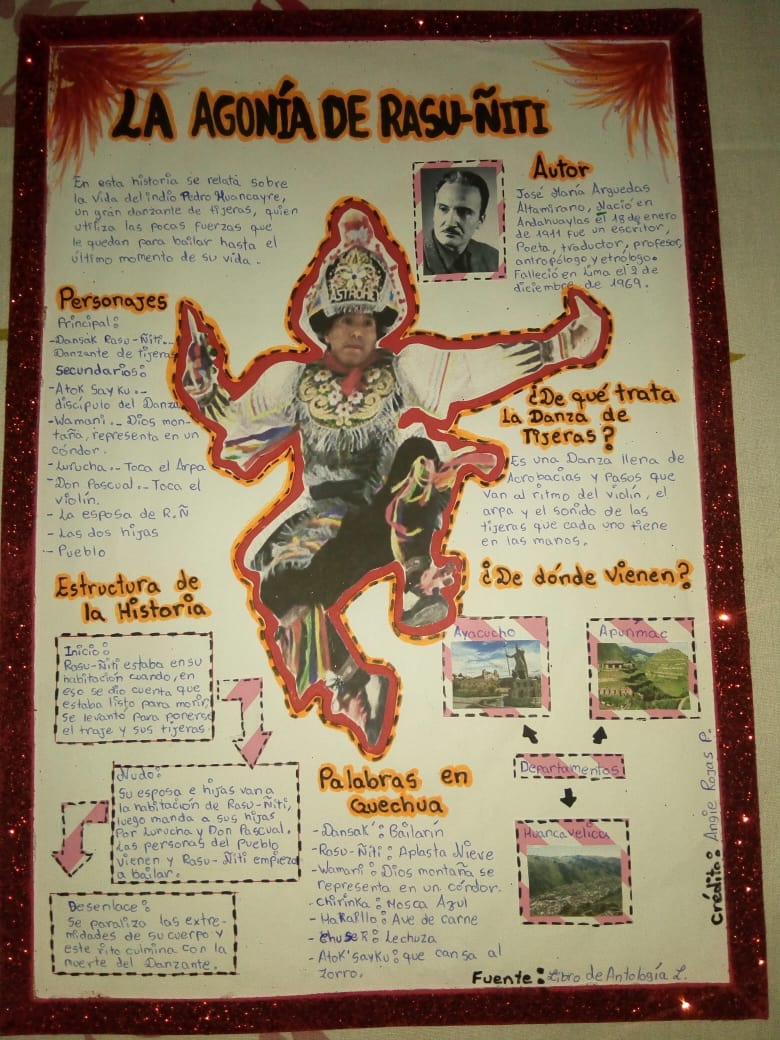 LA AGONÍA DE RASU-ÑITI
En esta historia se relata sobre
la Vida del indio Pedro Huancayre,
un gran danzante de tijeras, quien
utiliza las pocas fuerzas que
le quedan para bailar hasta el
último momento de su vida.
Autor
José María Arguedas
Altamirano, Nació en
Andahuaylas el 18 de enero
de 1911 fue un escritor,
Poeta, traductor, profesor,
antropólogo y etnólogo.
Falleció en Lima el 2 de
diciembre de 1969.
Personajes
Principal:
-Dansak Rasu-Ñiti..
Danzante de tijera
Secundarios:
-Atok Sayku.-
discípulo del Danza
-Wamani.- Dios mon-
taña, representa en un
cóndor.
-Lurucha.- Toca el Arpa
-Don Pascual.- Toca el
violín.
- La esposa de R.Ñ
- Las dos hijas
- Pueblo
¿De qué trata
La Danza de
Tijeras?
Es una Danza llena de
Acrobacias y Pasos que
van al ritmo del violín, el
arpa y el sonido de las
tijeras que cada uno tiene
en las manos.
Estructura de
la Historia
Inicio:
Rasu-Ñiti estaba en su
habitación cuando, en
eso se dio cuenta que
estaba listo para morir,
se levanto para ponerse
el traje y sus tijeras.
Nudo:
Su esposa e hijas van a
la habitación de Rasu-Ñiti,
luego manda a sus hijas
Por Lurucha y Don Pascual.
Las personas del Pueblo
vienen y Rasu-Ñiti empieza
a bailar.
Desenlace:
Se paraliza las extre-
midades de su cuerpo y
este rito culmina con la
muerte del Danzante.
Palabras en
Quechua
-Dansak': Bailarín
-Rasu-Ñiti: Aplasta Nieve
-Wamani: Dios montaña se
representa en un cóndor.
-Chirinka: Mosca Azul
-Hakakllo: Ave de carne
-Chusek: Lechuza
-Atok'sayku: que cansa al
zorro.
¿De dónde vienen?
Ayacucho
Apurímac
Departamentos
Huancavelica
Crédito: Angie Rojas P.
Fuente: Libro de Antología L.